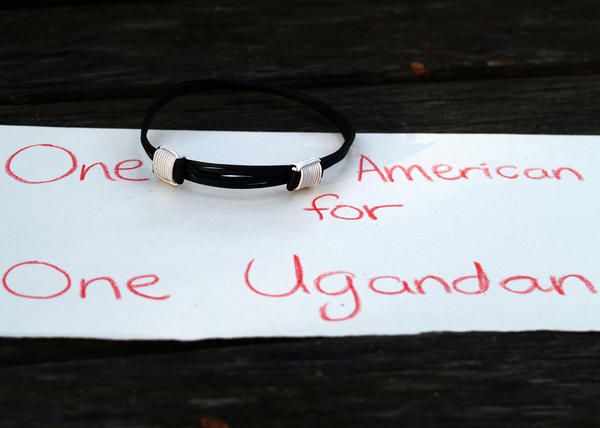 One American
for
One Ugandan